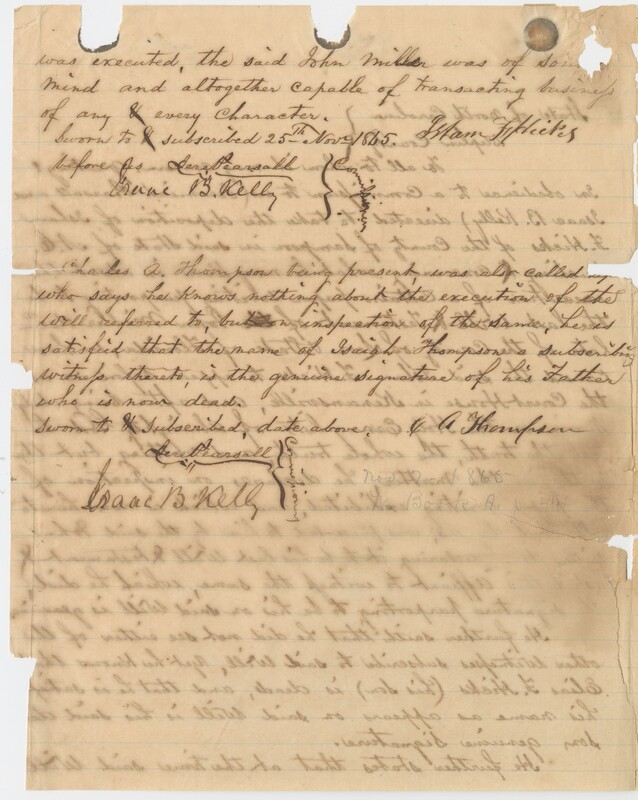 was executed, the said John Miller was of sound
mind and altogether capable of transacting business
of any & every character.
Sworn to & subscribed 25th Nov 1865. Isham F Hicks
before us Jere Pearsall
Isaac B. Kelly } Commissioners
Charles A. Thompson being present, was also called up
who says he knows nothing about the execution of the
Will referred to, but on inspection of the same, he is
satisfied that the name of Isaigh Thompson a subscribing
witness thereto, is the genuine signature of his Father
who is now dead.
Sworn to & subscribed, date above. C A Thompson
Jere Pearsall
Isaac B Kelly } Commissioners
Book A